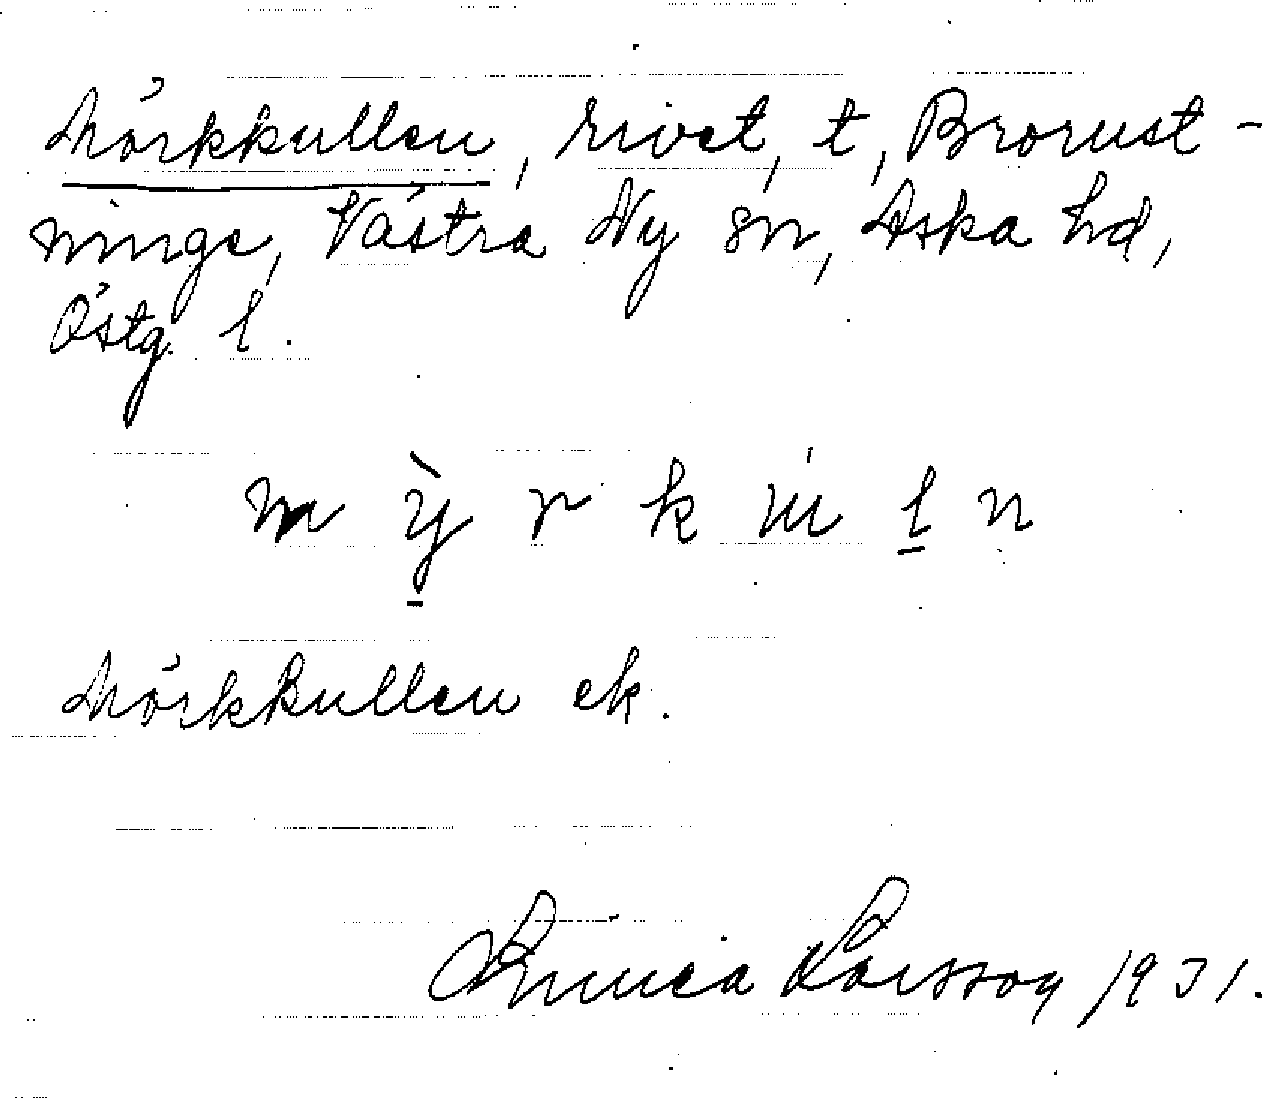 Mörkkullen, rivet, t, Brorust-
ninge, Västra Ny sn, Aska hd,
Östg. l.
m ỳ̱ r k ú ḻ n
Mörkkullen ek.
Linnéa Larsson 1931.